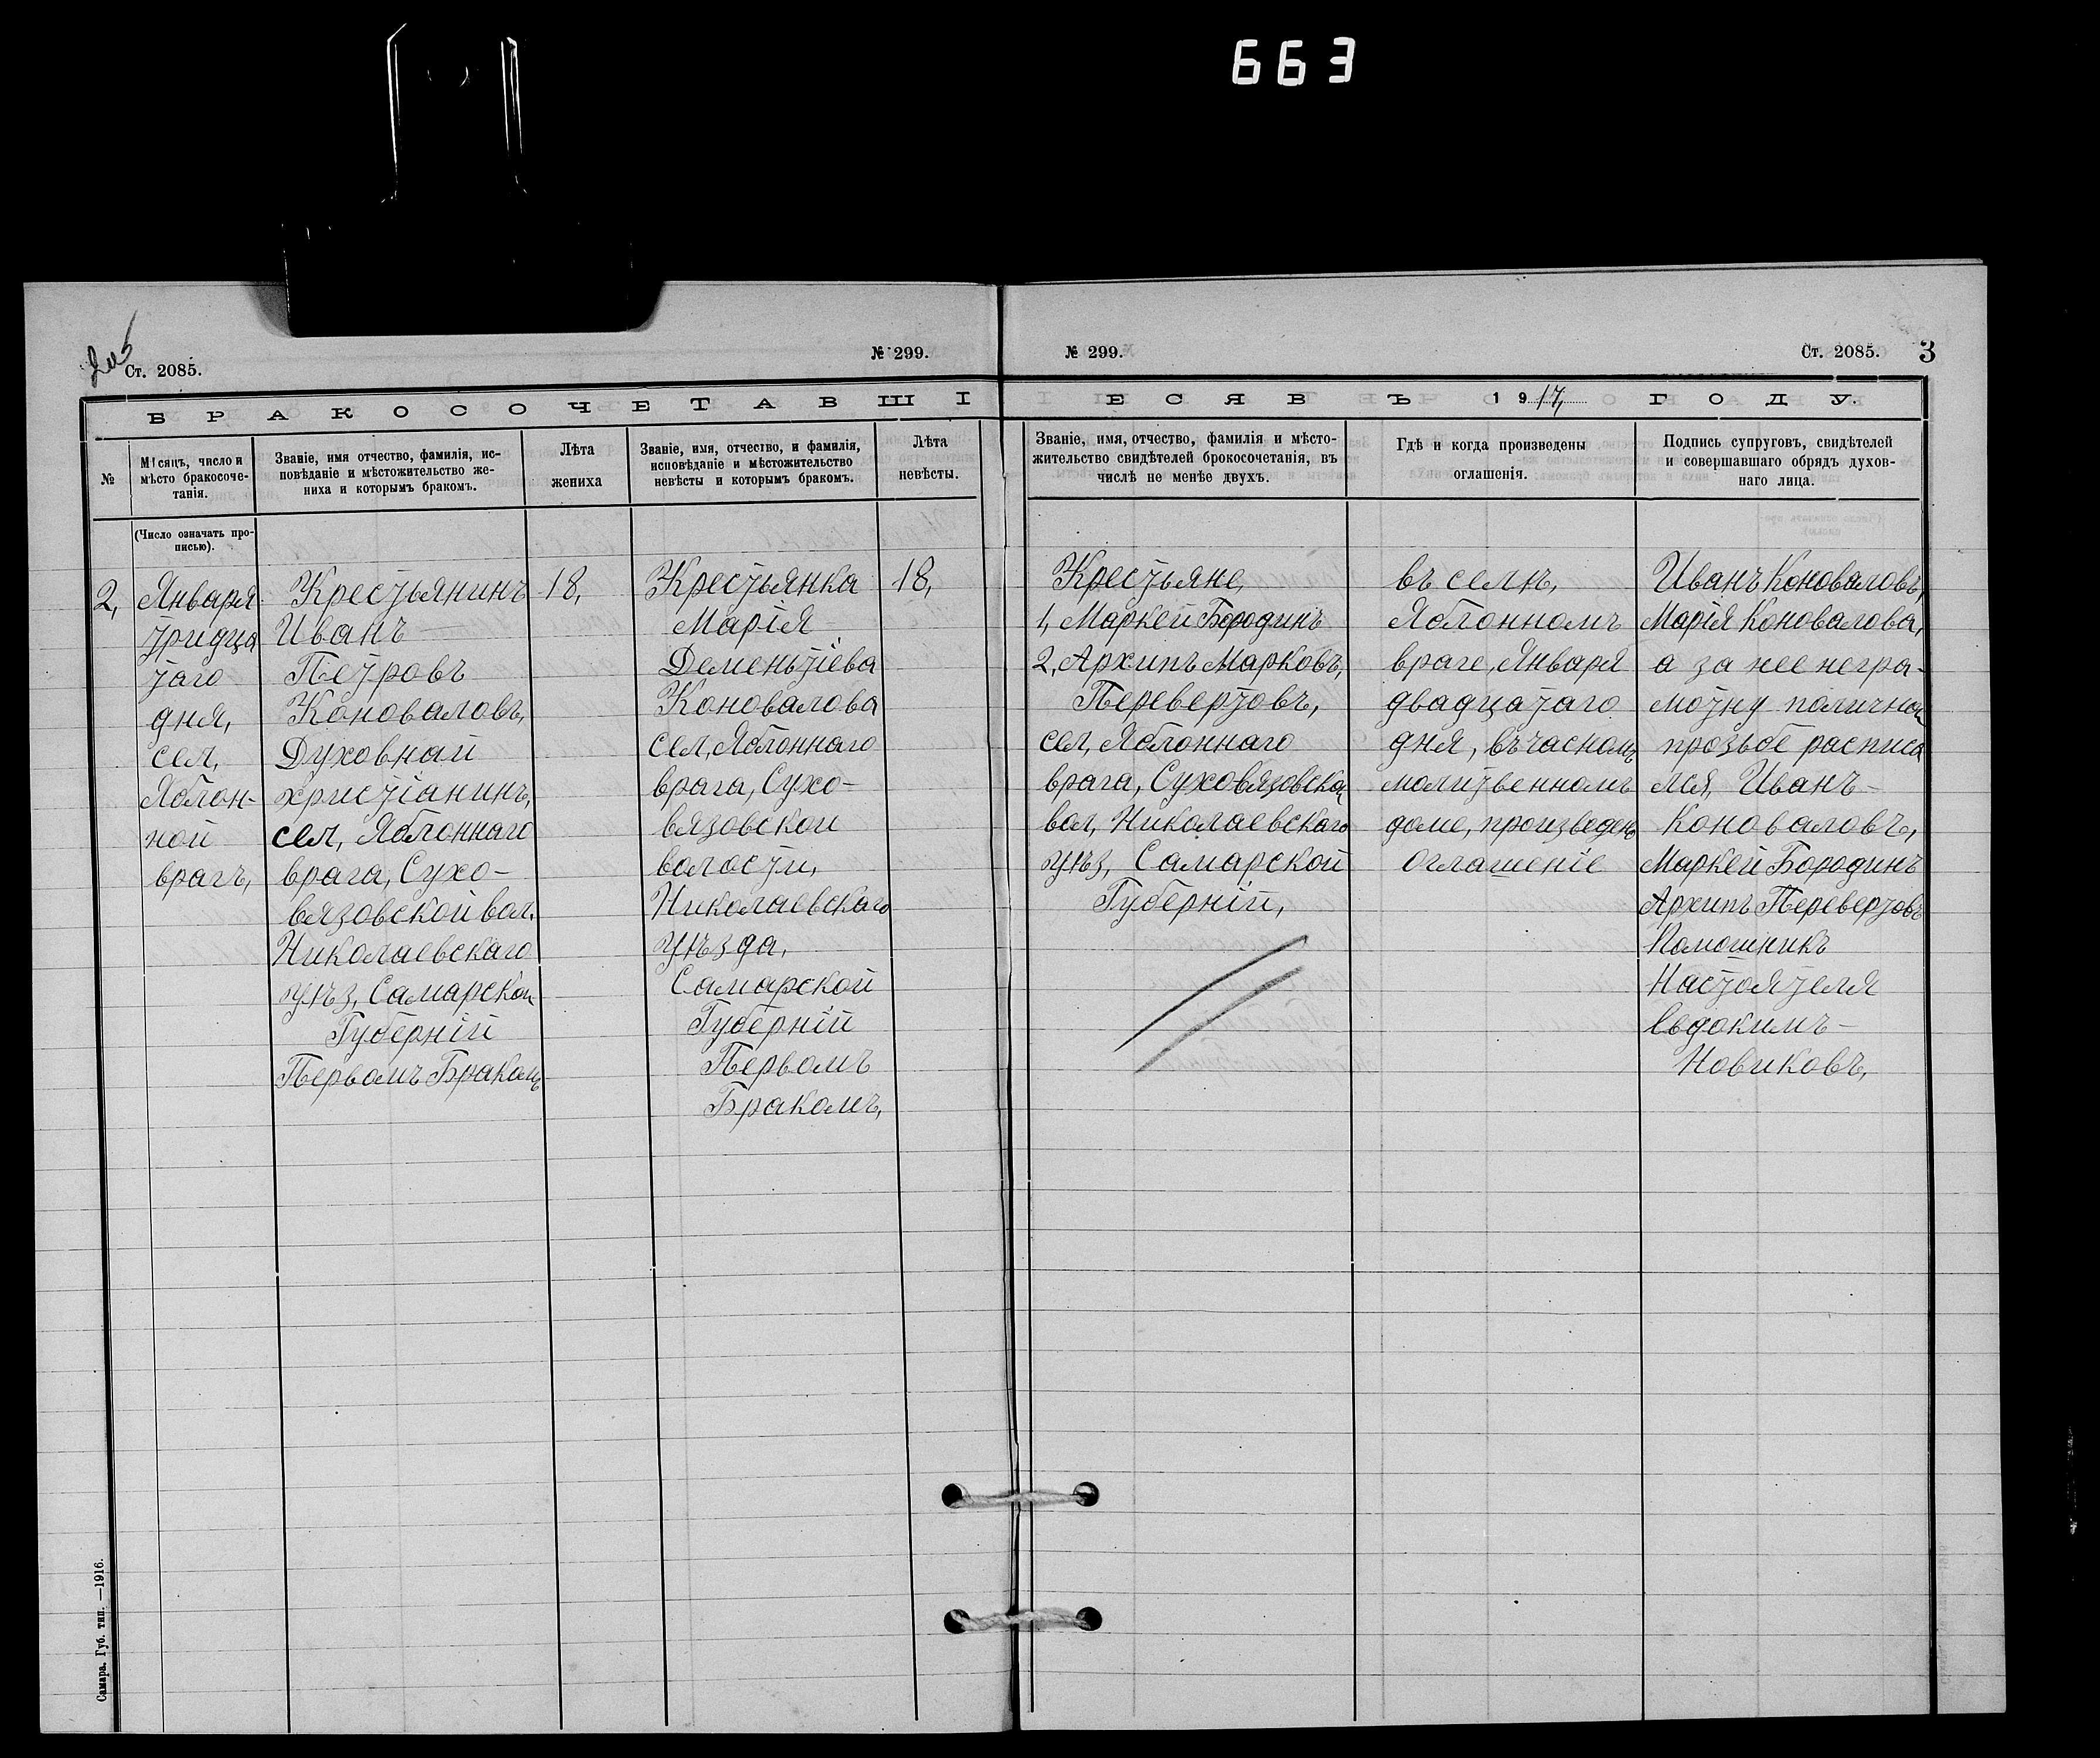 663
Ст. 2085.
№ 299.
№ 299.
Ст. 2085.
3
БРАКОСОЧЕТАВШІ
ЕСЯ ВЪ 1917, ГОДУ.
№
Мѣсяцъ, число и
мѣсто бракосоче-
танія.
(Число означать про-
писью).
Званіе, имя отчество, фамилія, ис-
повѣданіе и мѣстожительство же-
ниха и которымъ бракомъ.
Лѣта
жениха
Званіе, имя, отчество, и фамилія,
исповѣданіе и мѣстожительство
невѣсты и которымъ бракомъ.
Лѣта
невѣсты.
Званіе, имя, отчество, фамилія и мѣсто-
жительство свидѣтелей брокосочетанія, въ
числѣ не менѣе двухъ.
Гдѣ и когда произведены
оглашенія.
Подпись супруговъ, свидѣтелей
и совершавшаго обрядъ духов-
наго лица.
2,
Января
тридца
таго
дня,
сел,
Яблон-
ной
врагъ,
Крестьянинъ
Иванъ
Петровъ
Коноваловъ,
Духовнай
христіанинъ,
сел, Яблоннаго
врага, Сухо-
вязовской вол,
Николаевскаго
уѣз, Самарской
Губерній
Первомъ Бракомъ
18,
Крестьянка
Марія
Дементіева
Коновалова
сел, Яблоннаго
врага, Сухо-
вязовской
волости,
Николаевскаго
уѣзда,
Самарской
Губерній
Первомъ
Бракомъ,
18,
Крестьяне,
1, Маркей Бородинъ
2, Архипъ Марковъ,
Перевертовъ,
сел, Яблоннаго
врага, Суховязовской
вол, Николаевскаго
уѣз, Самарской
Губерній,
въ селѣ,
Яблонномъ
враге, Января
двадцатаго
дня, въ часномъ
молитвенномъ
доме, произведено
оглашеніе
Иванъ Коноваловъ,
Марія Коновалова,
а за нее негра-
мотну поличной
прозьбе расписа
лся, Иванъ
Коноваловъ,
Маркей Бородинъ
Архипъ Перевертовъ
Помошникъ
Настоятеля
Евдокимъ
Новиковъ,
Самара. Губ. тип. —1916.